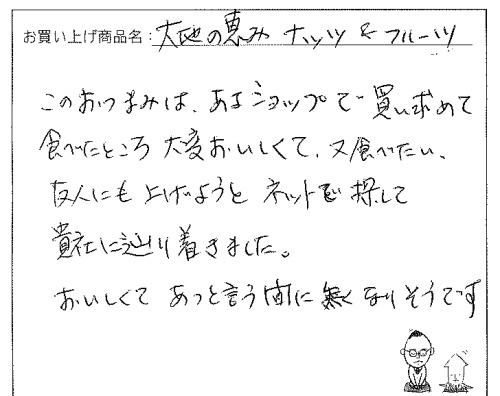 お買い上げ商品名：大地の恵み ナッツ & フルーツ
このおつまみは、あるショップで買い求めて
食べたところ 大変おいしくて、又食べたい、
友人にも上げようと ネットで探して
貴社に辿り着きました。
おいしくて あっと言う間に無くなりそうです